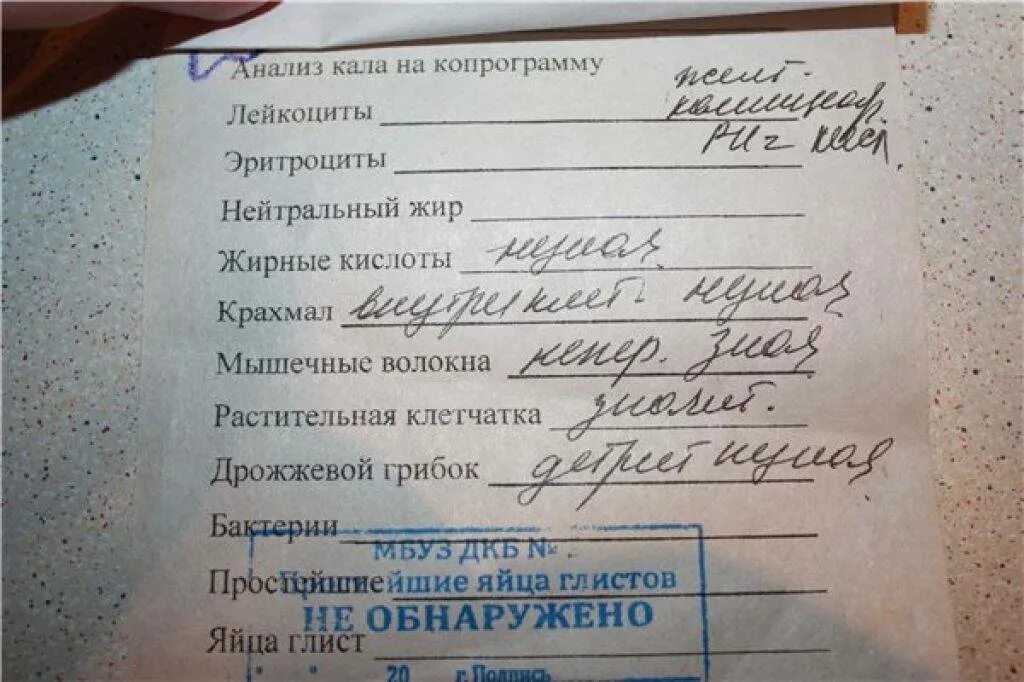 Анализ кала на копрограмму желт.
Лейкоциты кашицеобр.
Эритроциты PH =
Нейтральный жир
Жирные кислоты
Крахмал внутриклет.
Мышечные волокна непер.
Растительная клетчатка значит.
Дрожжевой грибок детрит
Бактерии
МБУЗ ДКБ №
Простейшие
яйца глистов
НЕ ОБНАРУЖЕНО
Яйца глист
" " 20 г. Подпись